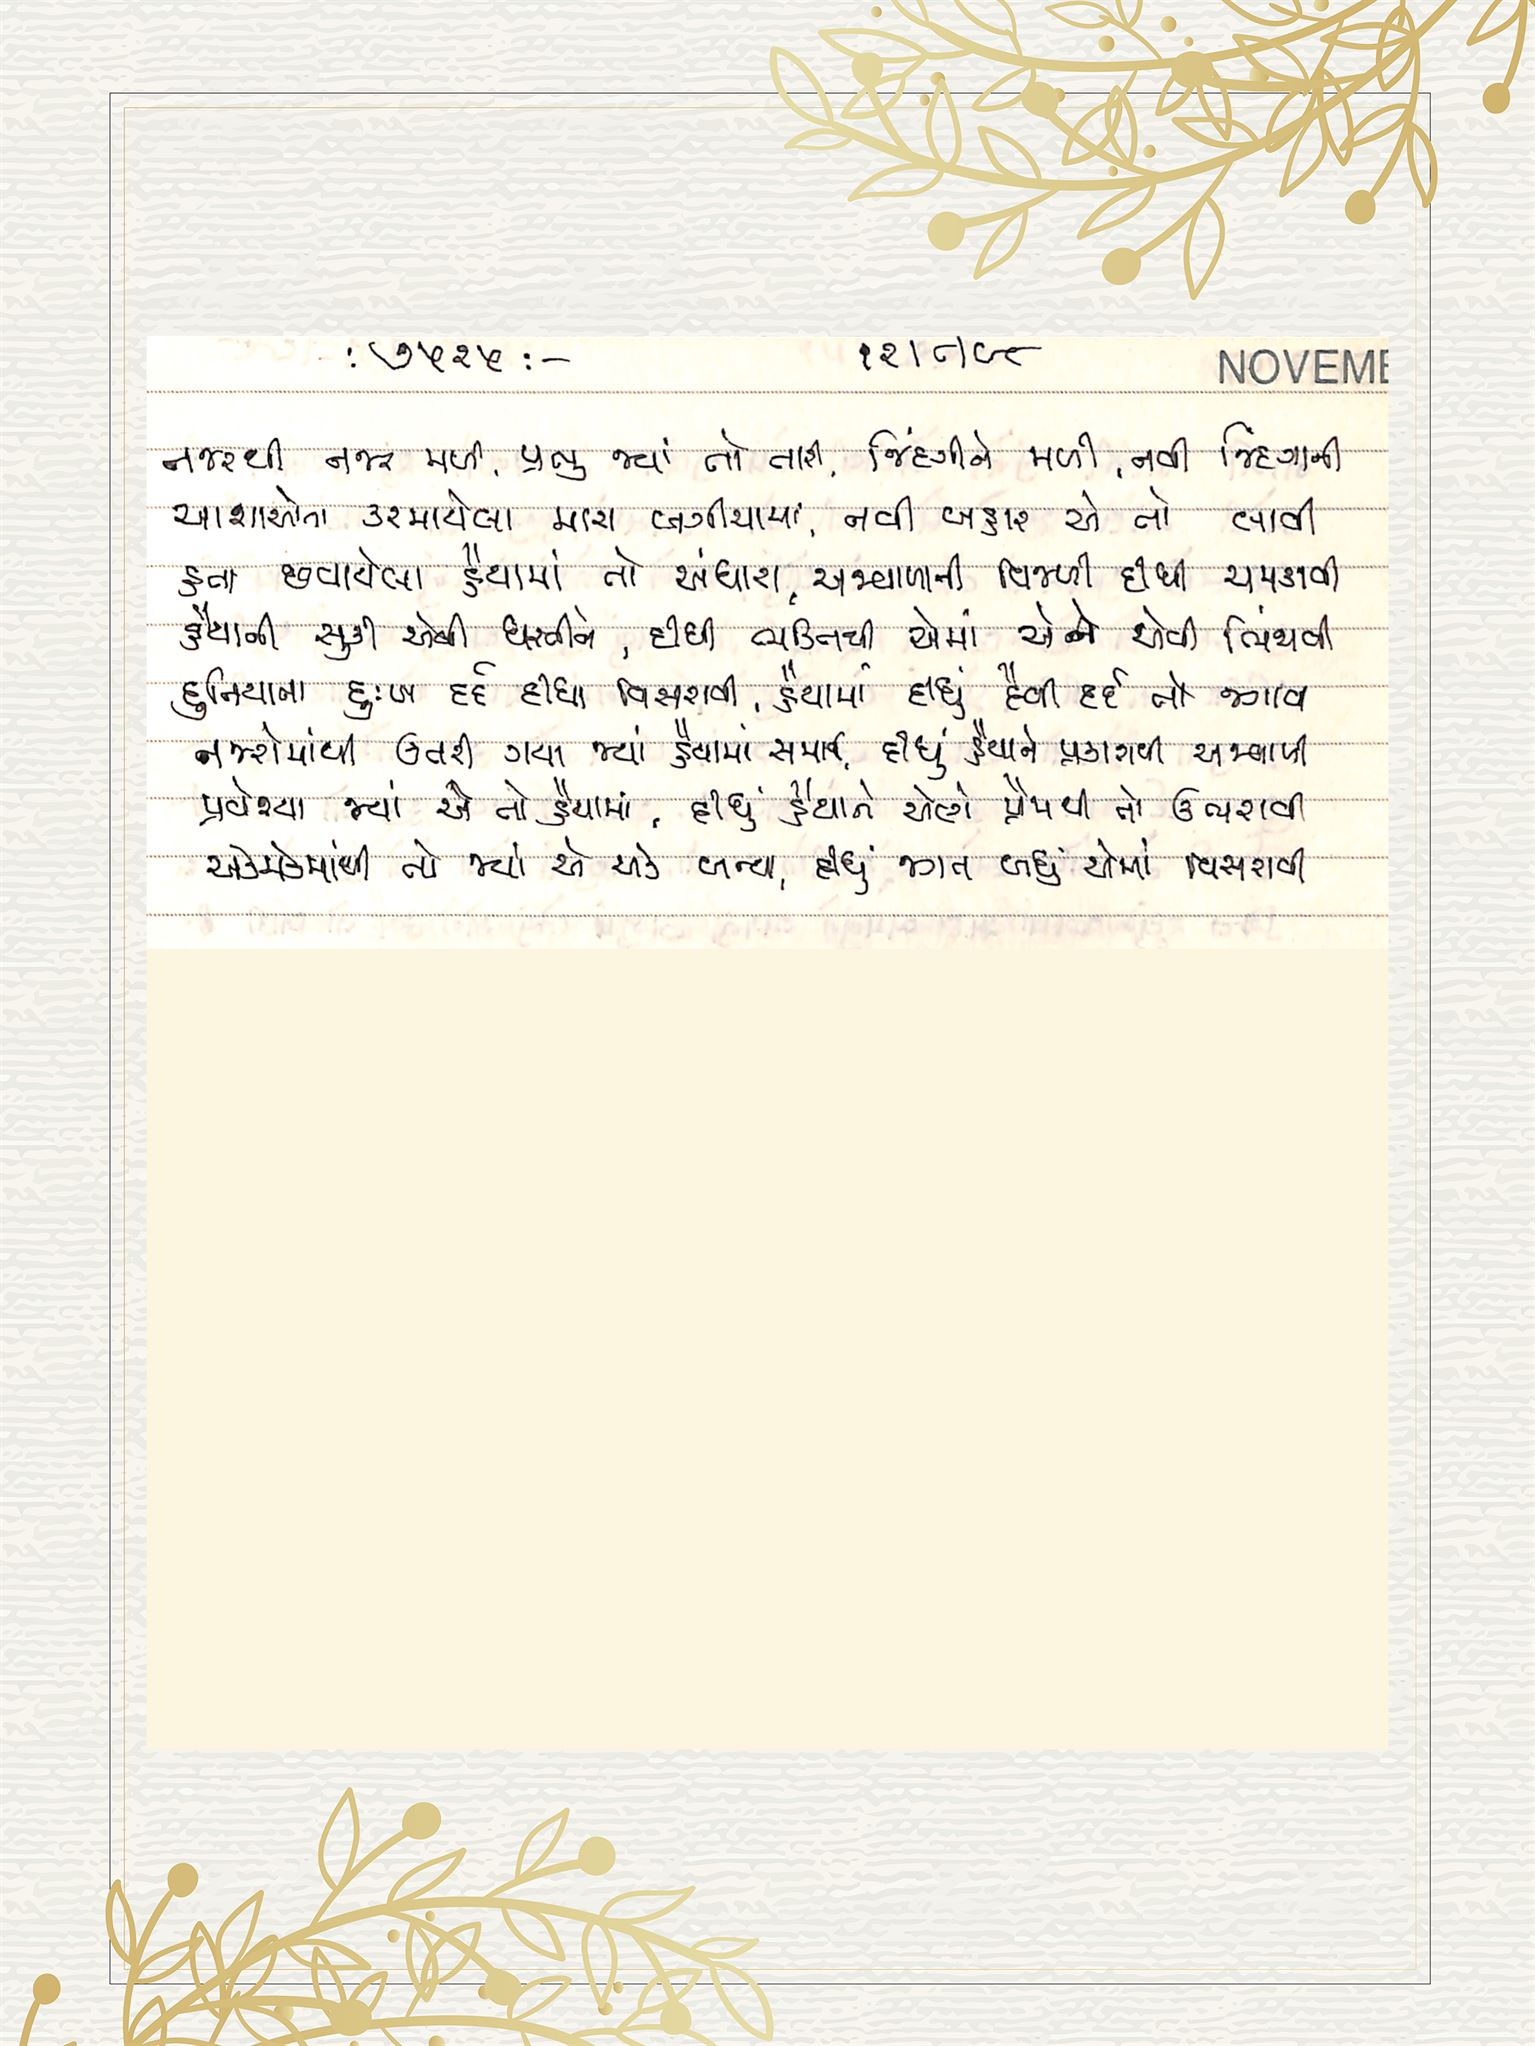 : ૭૫૨૫ :-
NOVEME
નજરથી નજર મળી, પ્રભુ જ્યાં તો તારી, જિંદગીને મળી, નવી જિંદગાની
આશાઓના કરમાયેલા મારા બગીચામાં, નવી બહાર એ તો લાવી
હતા છવાયેલા હૈયામાં તો અંધારા, અજવાળાની વિજળી દીધી ચમકાવી
હૈયાની સુકી એવી ધરતીને, દીધી એમાં એને એવી સિંચવી
દુનિયાના દુઃખ દર્દ દીધા વિસરાવી, હૈયામાં દીધું દૈવી દર્દ તો જગાવી
નજરોમાંથી ઉતરી ગયા જ્યાં હૈયામાં સમાઈ, દીધું હૈયાને પ્રકાશથી અજવાળી
પ્રવેશ્યા જ્યાં એ તો હૈયામાં, દીધું હૈયાને એણે પ્રેમથી તો ઉભરાવી
એકમેકમાંથી તો જ્યાં એ એક બન્યા, દીધું જગત બધું એમાં વિસરાવી